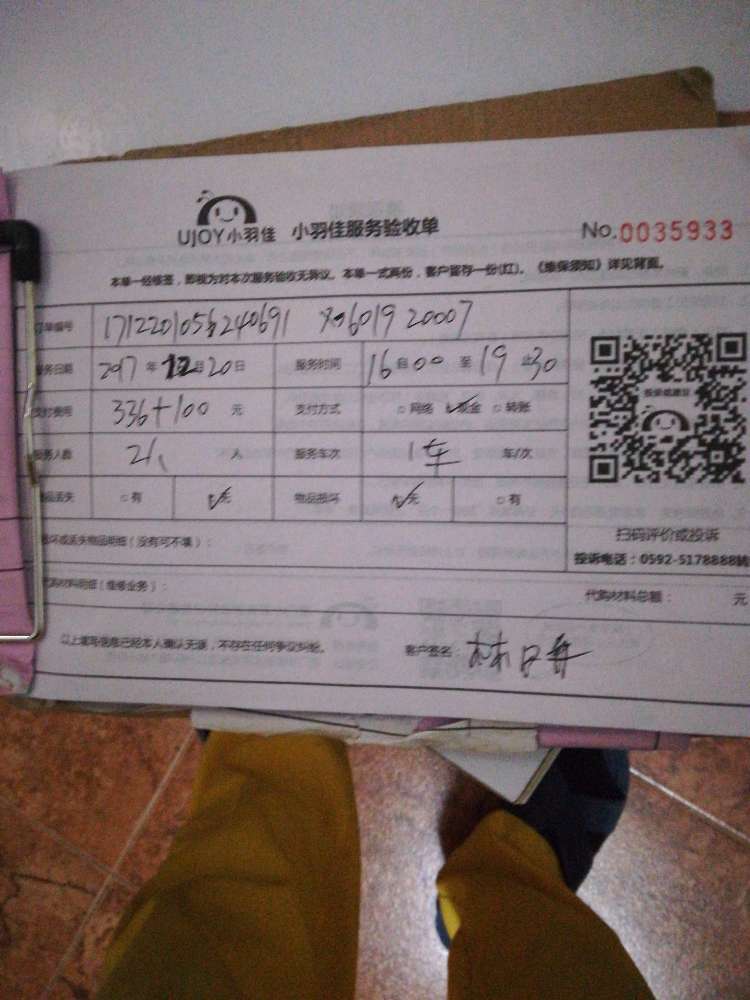 UJOY小羽佳 小羽佳服务验收单 No.0035933
本单一经核签，即视为对本次服务验收无异议。本单一式两份，客户留存一份(红)。《维保须知》详见背面。
单编号 1712201056240691
服务日期 2017年12月20日 服务时间 16自00至19止30
支付费用 336+100 元 支付方式 □网络 □现金 □转账
服务人数 人 服务车次 1车 车/次
品丢失 □有 □无 物品损坏 □无 □有
损坏或丢失物品明细（没有可不填）：
代购材料明细（维修业务）： 代购材料总额： 元
扫码评价或投诉
投诉电话：0592-5178888转
以上填写信息已经本人确认无误，不存在任何争议纠纷。 客户签名：